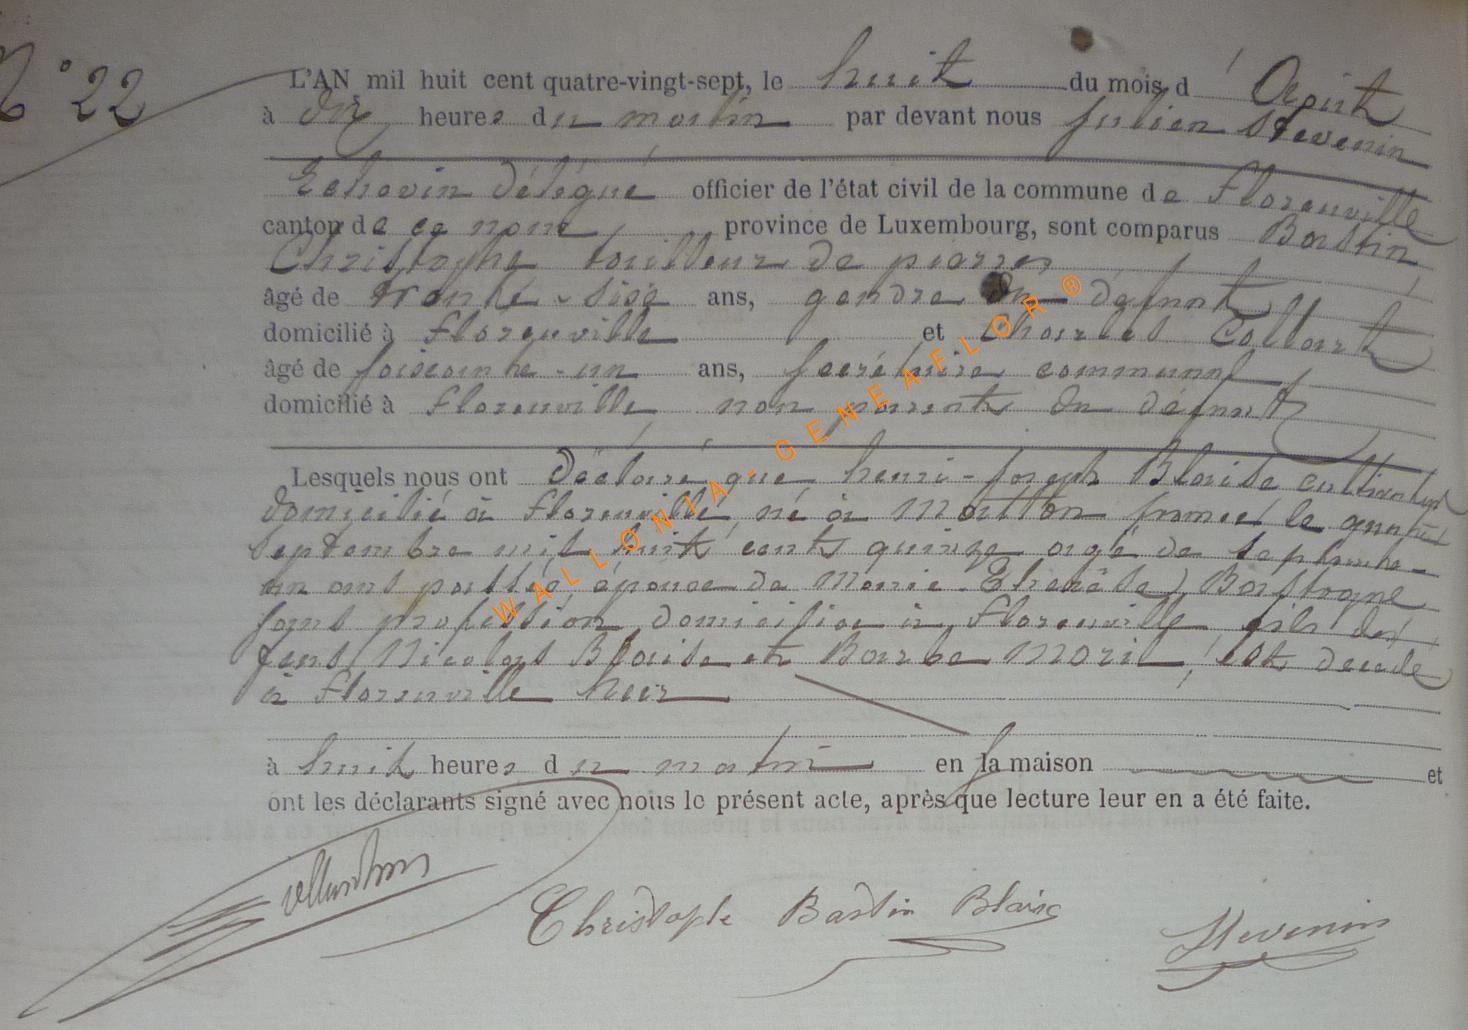 N° 22
L'AN mil huit cent quatre-vingt-sept, le huit du mois d'Août
à dix heures du matin par devant nous Julien Stevenin
Echevin délégué officier de l'état civil de la commune de Florenville
canton de ce nom province de Luxembourg, sont comparus Bastin
Christophe tailleur de pierres
âgé de trente-sise ans, gendre du défunt
domicilié à Florenville et Charles Collart
âgé de soiscante-un ans, secrétaire communal
domicilié à Florenville non parent du défunt
Lesquels nous ont déclaré que henri-joseph Blaise cultivateur
domicilié à Florenville, né à france le
Septembre mil huit cents quinze agé de septante-
un ans passé époux de Marie Bastogne
sans profession domiciliée à Florenville fils des
feus Nicolas Blaise et Barbe est decede
à Florenville hier
à huit heures du matin en la maison et
ont les déclarants signé avec nous le présent acte, après que lecture leur en a été faite.
Christophe Bastin Blaise Stevenin
WALLONIA-GENEAFLOR®